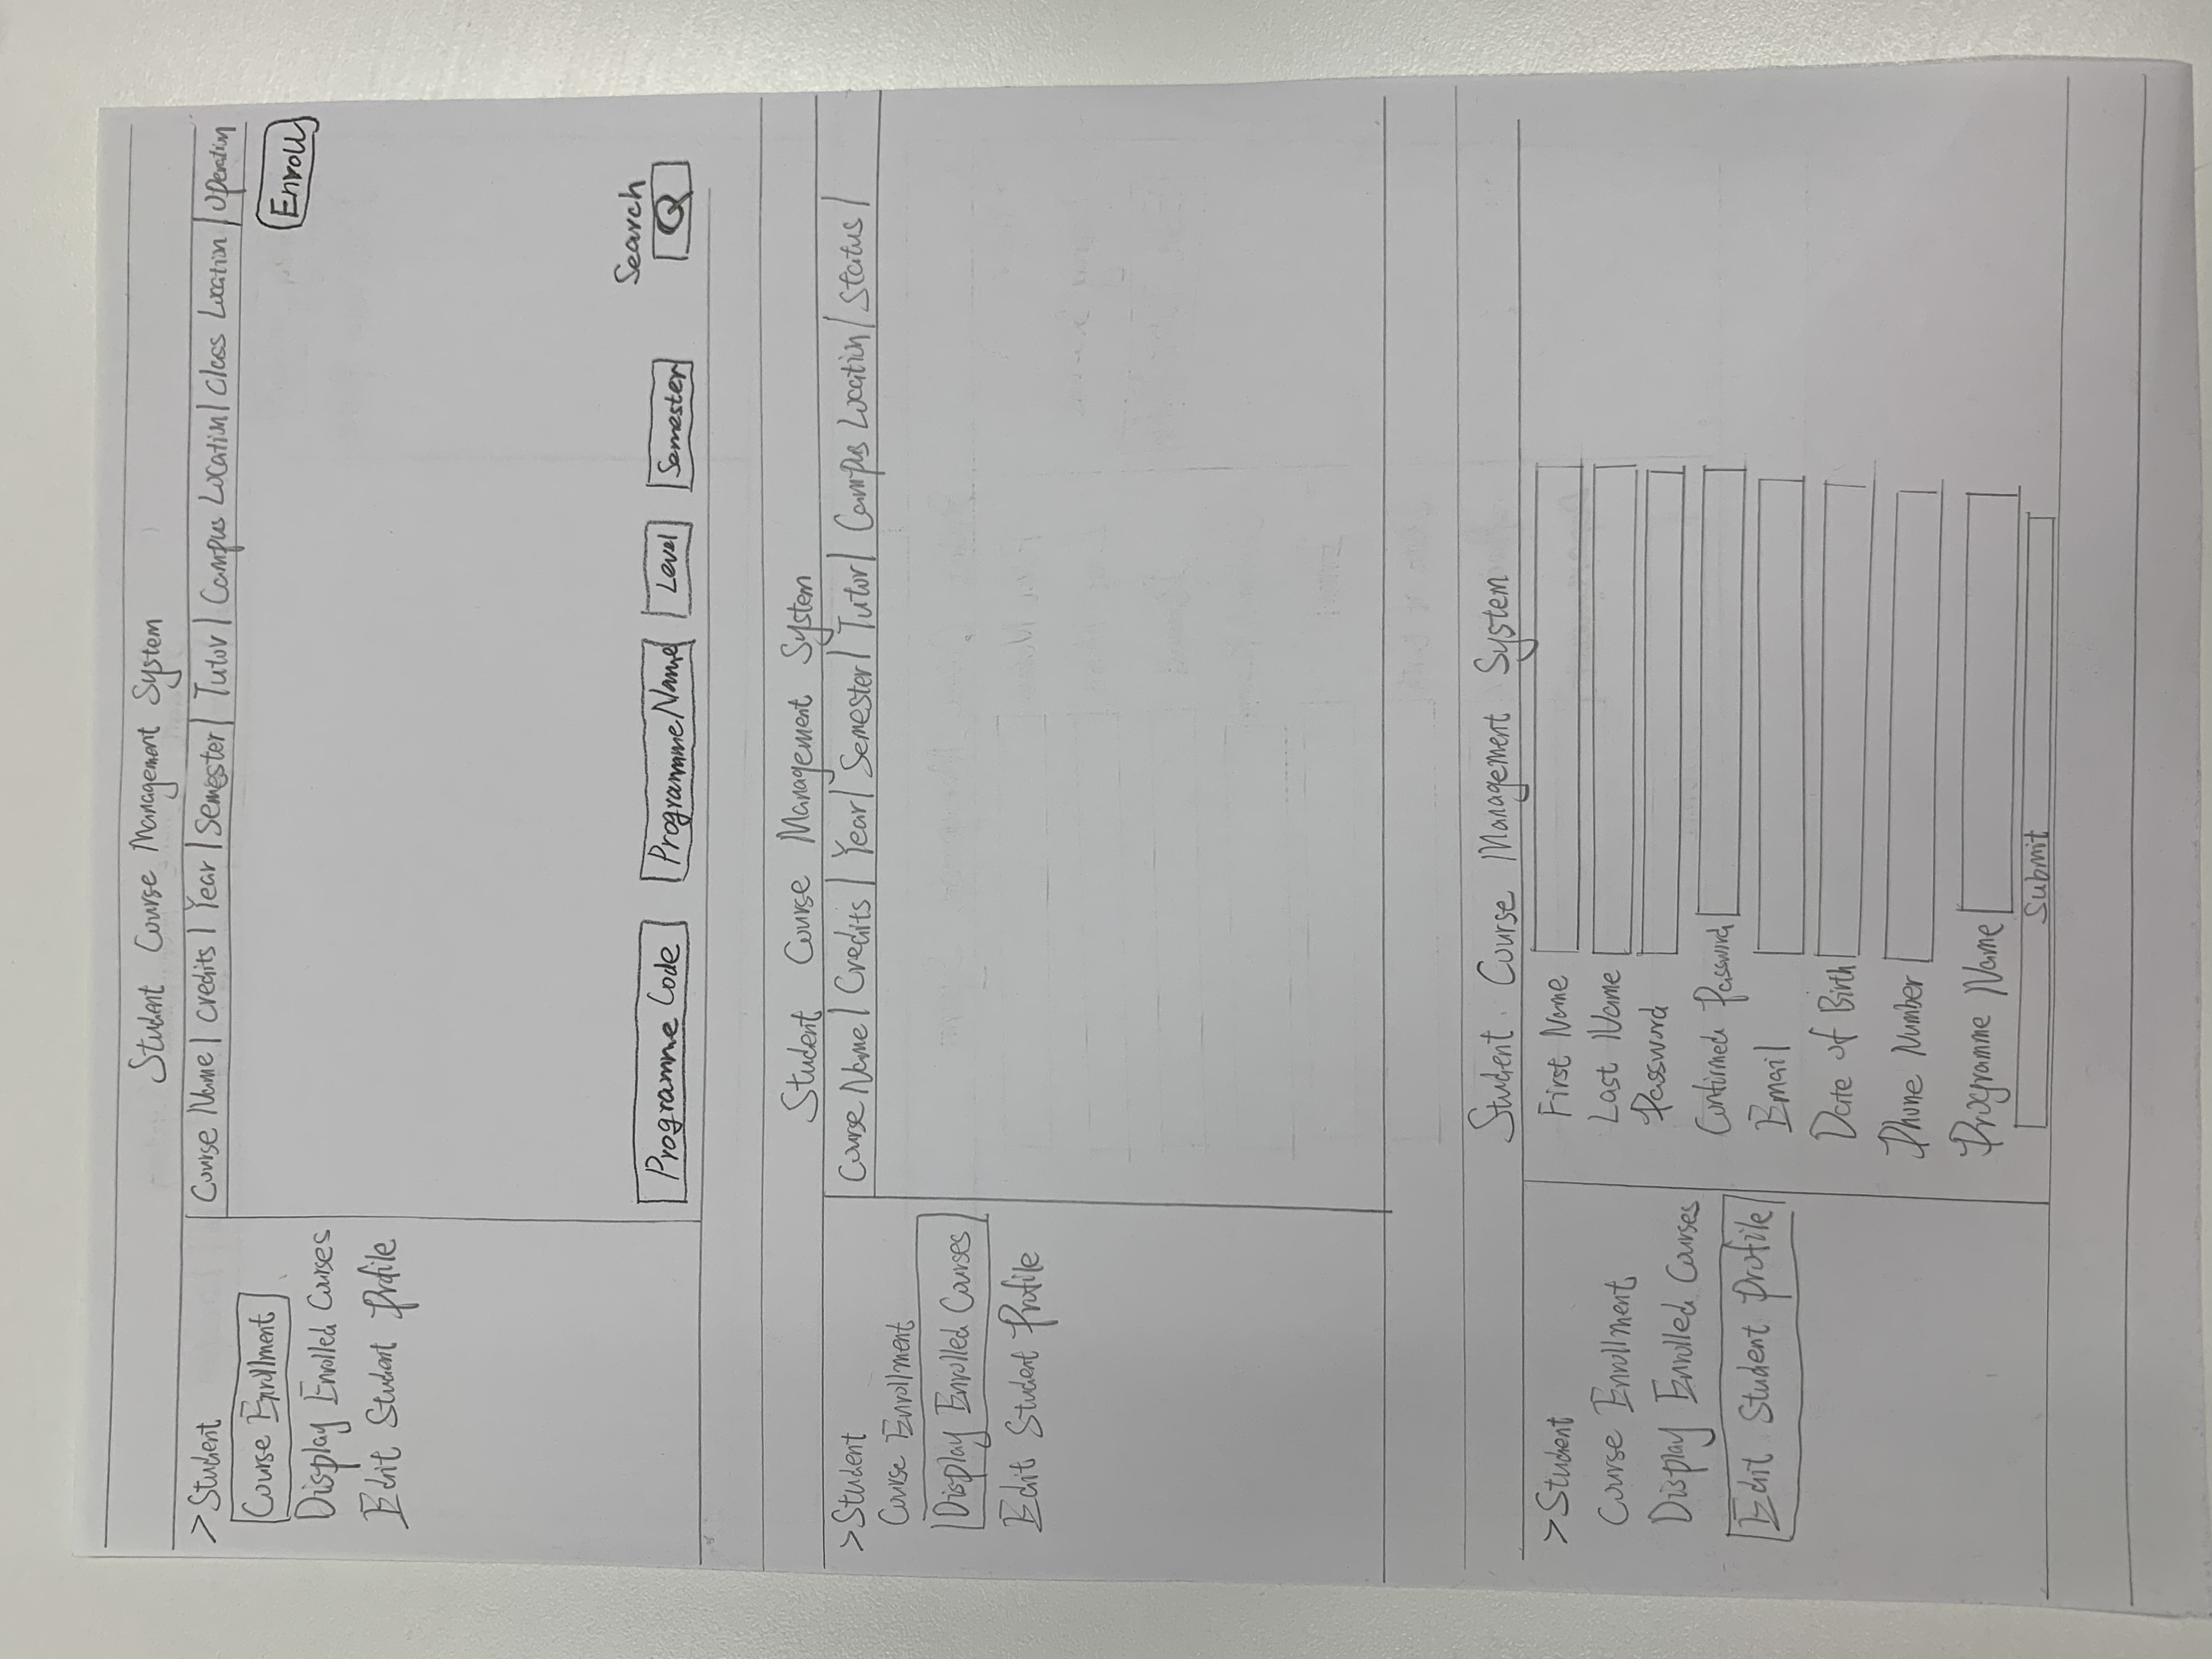 Student Course Management System
>Student
Course Enrollment
Display Enrolled Courses
Edit Student Profile
Course Name | Credits | Year | Semester | Tutor | Campus Location | Class Location | Operation
Enroll
Search
Programme Code Programme Name Level Semester
Student Course Management System
>Student
Course Enrollment
Display Enrolled Courses
Edit Student Profile
Course Name | Credits | Year | Semester | Tutor | Campus Location | Status |
Student Course Management System
>Student
Course Enrollment
Display Enrolled Courses
Edit Student Profile
First Name
Last Name
Password
Confirmed Password
Email
Date of Birth
Phone Number
Programme Name
Submit